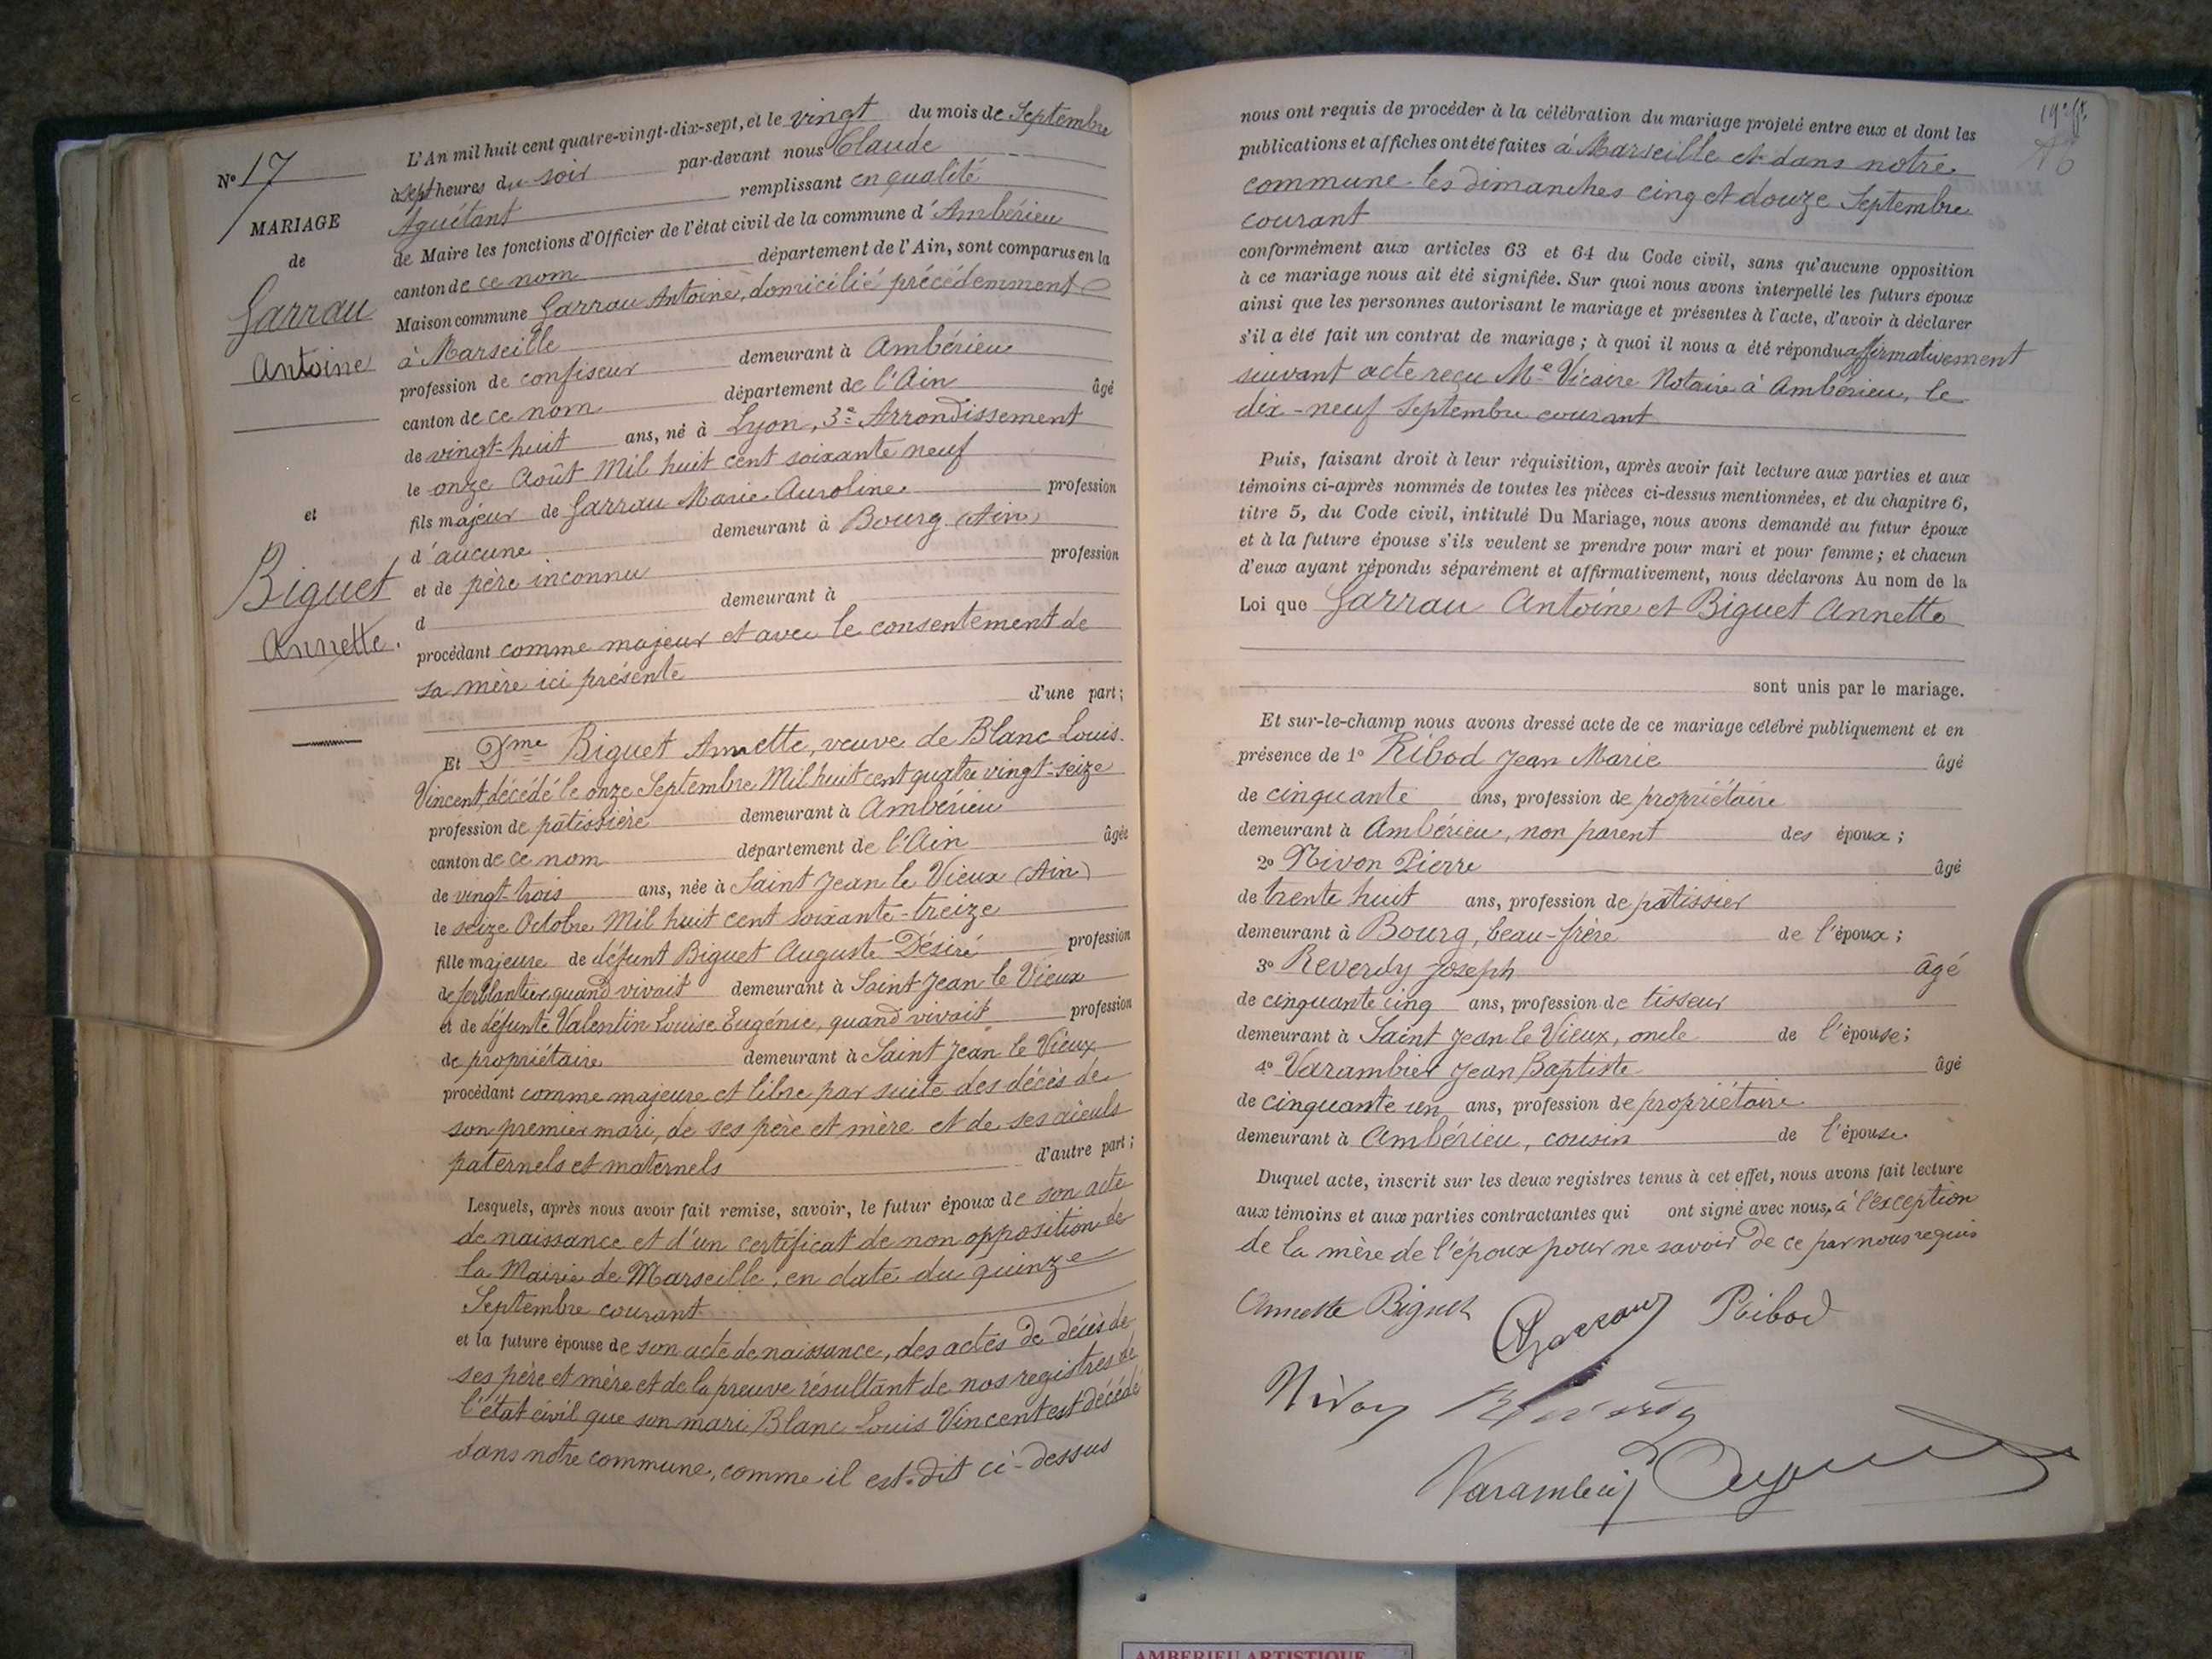 L'An mil huit cent quatre-vingt-dix-sept, et le vingt du mois de Septembre
N° 17
à sept heures du soir par-devant nous Claude
Aguétant remplissant en qualité
MARIAGE
de Maire les fonctions d'Officier de l'état civil de la commune d'Ambérieu
de
canton de ce nom département de l'Ain, sont comparus en la
Garrau
Maison commune Garrau Antoine, domicilié précédemment
Antoine
à Marseille
profession de confiseur demeurant à Ambérieu
canton de ce nom département de l'Ain âgé
de vingt-huit ans, né à Lyon, 3e Arrondissement
le onze Août Mil huit cent soixante neuf
et
fils majeur de Garrau Marie Auroline profession
d'aucune demeurant à Bourg (Ain)
Biguet
et de père inconnu profession
d demeurant à
Annette.
procédant comme majeur et avec le consentement de
sa mère ici présente
d'une part;
Et Dme Biguet Annette, veuve de Blanc Louis
Vincent, décédé le onze Septembre Mil huit cent quatre vingt-seize
profession de pâtissière demeurant à Ambérieu
canton de ce nom département de l'Ain âgée
de vingt-trois ans, née à Saint Jean le Vieux (Ain)
le seize Octobre Mil huit cent soixante-treize
fille majeure de défunt Biguet Auguste Désiré profession
de ferblantier quand vivait demeurant à Saint Jean le Vieux
et de défunte Valentin Louise Eugénie, quand vivait profession
de propriétaire demeurant à Saint Jean le Vieux
procédant comme majeure et libre par suite des décès de
son premier mari, de ses père et mère et de ses aïeuls
paternels et maternels d'autre part;
Lesquels, après nous avoir fait remise, savoir, le futur époux de son acte
de naissance et d'un certificat de non opposition de
la Mairie de Marseille, en date du quinze
Septembre courant
et la future épouse de son acte de naissance, des actes de décès de
ses père et mère et de la preuve résultant de nos registres de
l'état civil que son mari Blanc Louis Vincent est décédé
dans notre commune, comme il est dit ci-dessus
nous ont requis de procéder à la célébration du mariage projeté entre eux et dont les
publications et affiches ont été faites à Marseille et dans notre
commune les dimanches cinq et douze Septembre
courant
conformément aux articles 63 et 64 du Code civil, sans qu'aucune opposition
à ce mariage nous ait été signifiée. Sur quoi nous avons interpellé les futurs époux
ainsi que les personnes autorisant le mariage et présentes à l'acte, d'avoir à déclarer
s'il a été fait un contrat de mariage; à quoi il nous a été répondu affirmativement
suivant acte reçu Me Vicaire Notaire à Ambérieu, le
dix-neuf Septembre courant
Puis, faisant droit à leur réquisition, après avoir fait lecture aux parties et aux
témoins ci-après nommés de toutes les pièces ci-dessus mentionnées, et du chapitre 6,
titre 5, du Code civil, intitulé Du Mariage, nous avons demandé au futur époux
et à la future épouse s'ils veulent se prendre pour mari et pour femme; et chacun
d'eux ayant répondu séparément et affirmativement, nous déclarons Au nom de la
Loi que Garrau Antoine et Biguet Annette
sont unis par le mariage.
Et sur-le-champ nous avons dressé acte de ce mariage célébré publiquement et en
présence de 1° Ribod Jean Marie âgé
de cinquante ans, profession de propriétaire
demeurant à Ambérieu, non parent des époux;
2° Nivon Pierre âgé
de trente huit ans, profession de pâtissier
demeurant à Bourg, beau-frère de l'époux;
3° Reverdy Joseph âgé
de cinquante cinq ans, profession de tisseur
demeurant à Saint Jean le Vieux, oncle de l'épouse;
4° Varambier Jean Baptiste âgé
de cinquante un ans, profession de propriétaire
demeurant à Ambérieu, cousin de l'épouse
Duquel acte, inscrit sur les deux registres tenus à cet effet, nous avons fait lecture
aux témoins et aux parties contractantes qui ont signé avec nous, à l'exception
de la mère de l'époux pour ne savoir de ce par nous requis
Annette Biguet Garrau Ribod
Nivon Reverdy
Varambier
AMBERIEU ARTISTIQUE